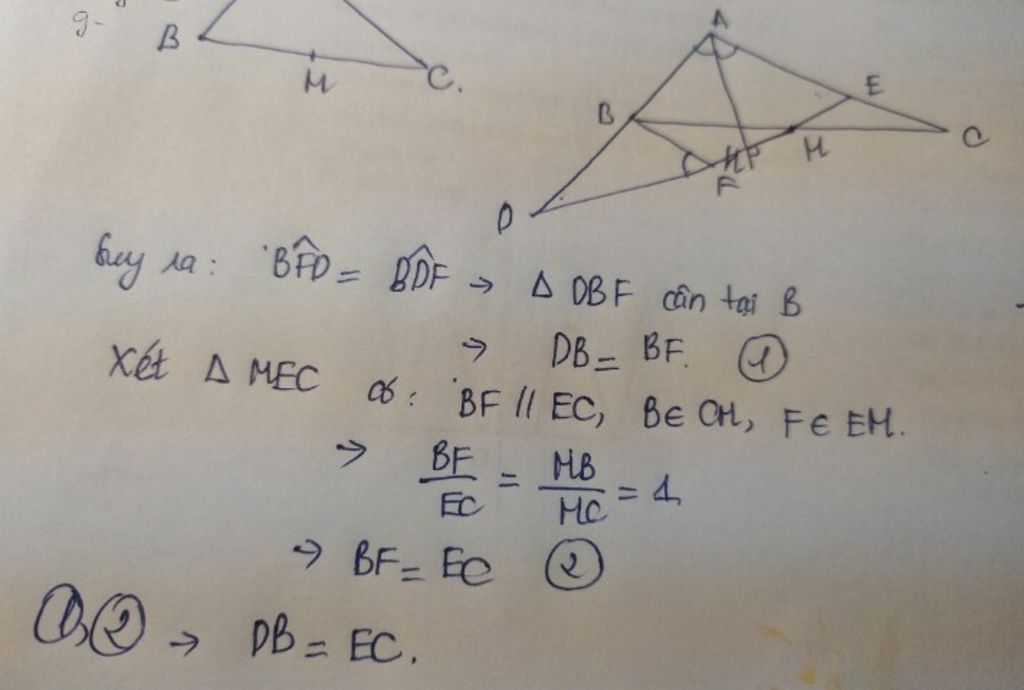 g-
B
M
C.
A
B
E
C
M
H
P
F
D
Suy ra: BFD̂ = BDF̂ → Δ DBF cân tại B
→ DB = BF. ①
Xét Δ MEC có: BF // EC, B∈ CM, F∈ EM.
→ BF/EC = MB/MC = 1
→ BF = EC ②
①,② → DB = EC.